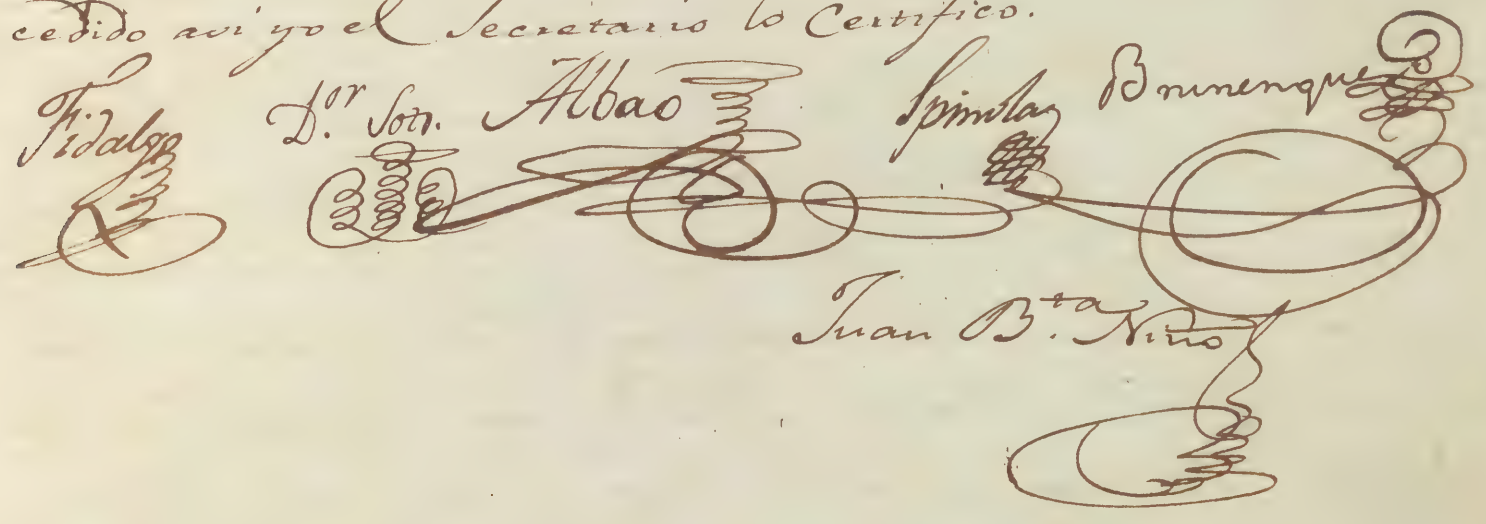 cedido asi yo el Secretario lo Certifico.
Fidalgo D.or Soto. Albao Spinola Brunenque
Juan B.ta Niño